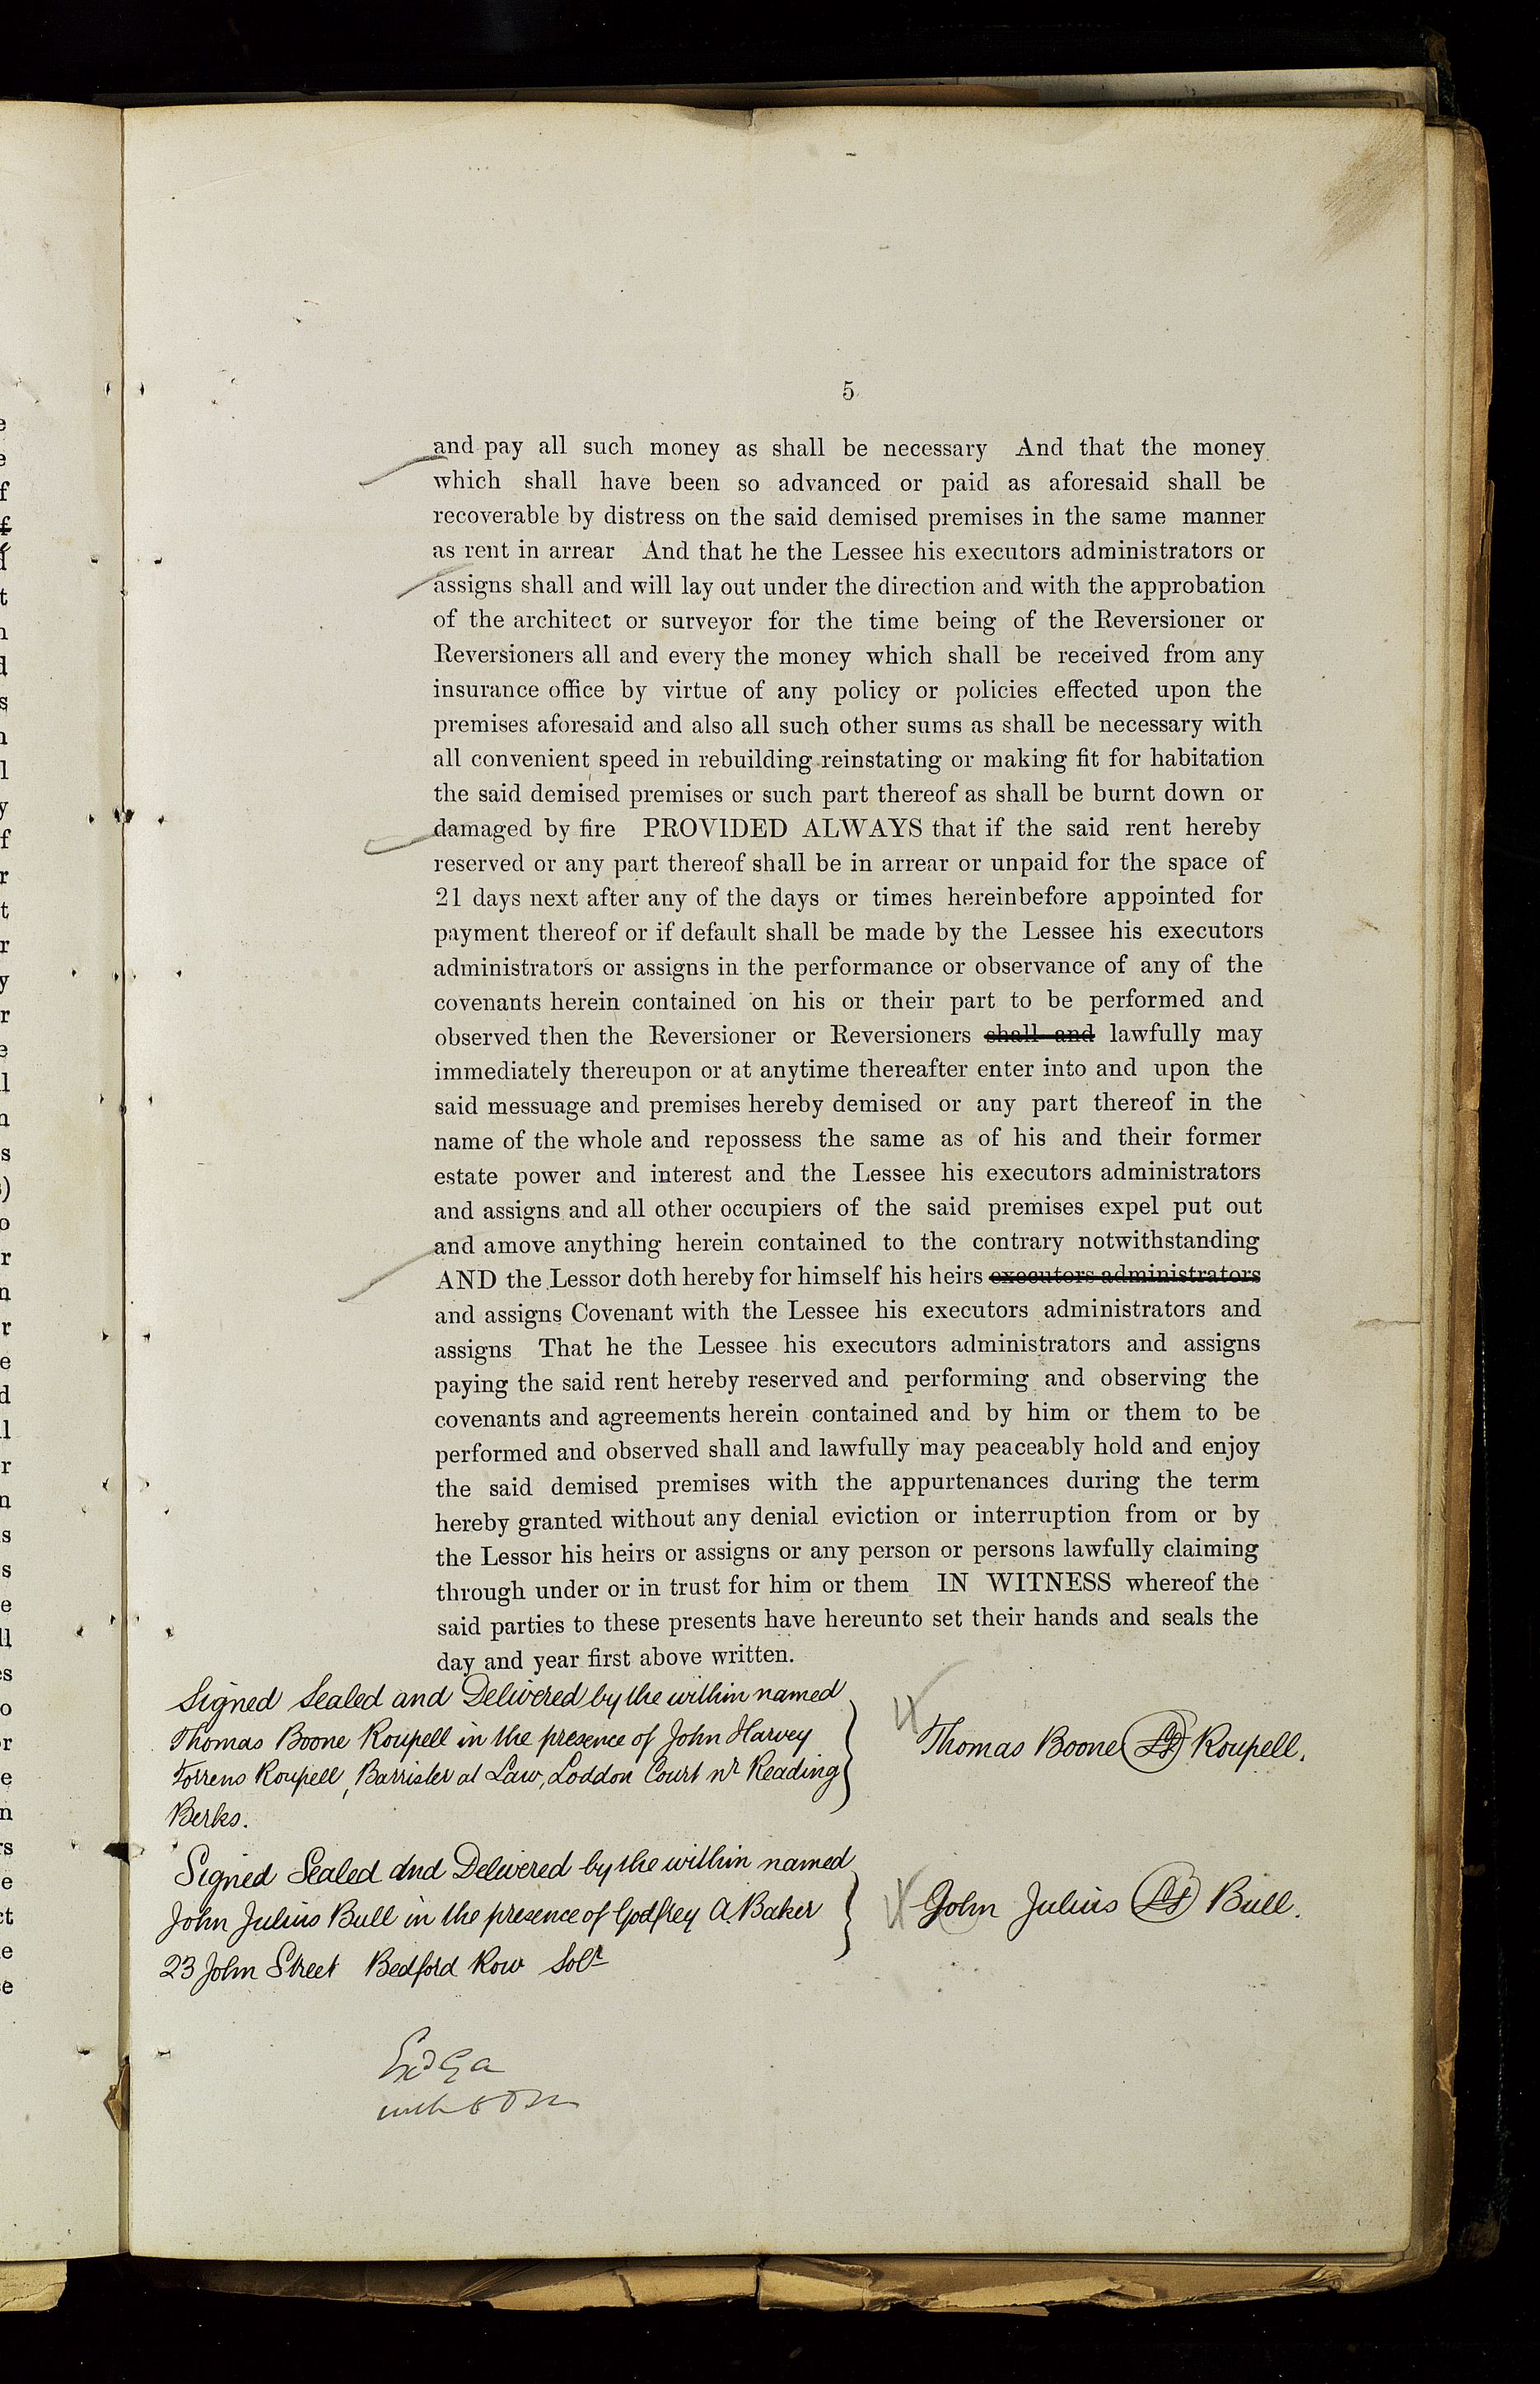 5
and pay all such money as shall be necessary And that the money
which shall have been so advanced or paid as aforesaid shall be
recoverable by distress on the said demised premises in the same manner
as rent in arrear And that he the Lessee his executors administrators or
assigns shall and will lay out under the direction and with the approbation
of the architect or surveyor for the time being of the Reversioner or
Reversioners all and every the money which shall be received from any
insurance office by virtue of any policy or policies effected upon the
premises aforesaid and also all such other sums as shall be necessary with
all convenient speed in rebuilding reinstating or making fit for habitation
the said demised premises or such part thereof as shall be burnt down or
damaged by fire PROVIDED ALWAYS that if the said rent hereby
reserved or any part thereof shall be in arrear or unpaid for the space of
21 days next after any of the days or times hereinbefore appointed for
payment thereof or if default shall be made by the Lessee his executors
administrators or assigns in the performance or observance of any of the
covenants herein contained on his or their part to be performed and
observed then the Reversioner or Reversioners shall and lawfully may
immediately thereupon or at anytime thereafter enter into and upon the
said messuage and premises hereby demised or any part thereof in the
name of the whole and repossess the same as of his and their former
estate power and interest and the Lessee his executors administrators
and assigns and all other occupiers of the said premises expel put out
and amove anything herein contained to the contrary notwithstanding
AND the Lessor doth hereby for himself his heirs executors administrators
and assigns Covenant with the Lessee his executors administrators and
assigns That he the Lessee his executors administrators and assigns
paying the said rent hereby reserved and performing and observing the
covenants and agreements herein contained and by him or them to be
performed and observed shall and lawfully may peaceably hold and enjoy
the said demised premises with the appurtenances during the term
hereby granted without any denial eviction or interruption from or by
the Lessor his heirs or assigns or any person or persons lawfully claiming
through under or in trust for him or them IN WITNESS whereof the
said parties to these presents have hereunto set their hands and seals the
day and year first above written.
Signed Sealed and Delivered by the within named
Thomas Boone Roupell in the presence of John Harvey
Torrens Roupell, Barrister at Law, Loddon Court nr Reading
Berks.
Thomas Boone LS Roupell.
Signed Sealed and Delivered by the within named
John Julius Bull in the presence of Godfrey A. Baker
23 John Street Bedford Row Solr
John Julius LS Bull.